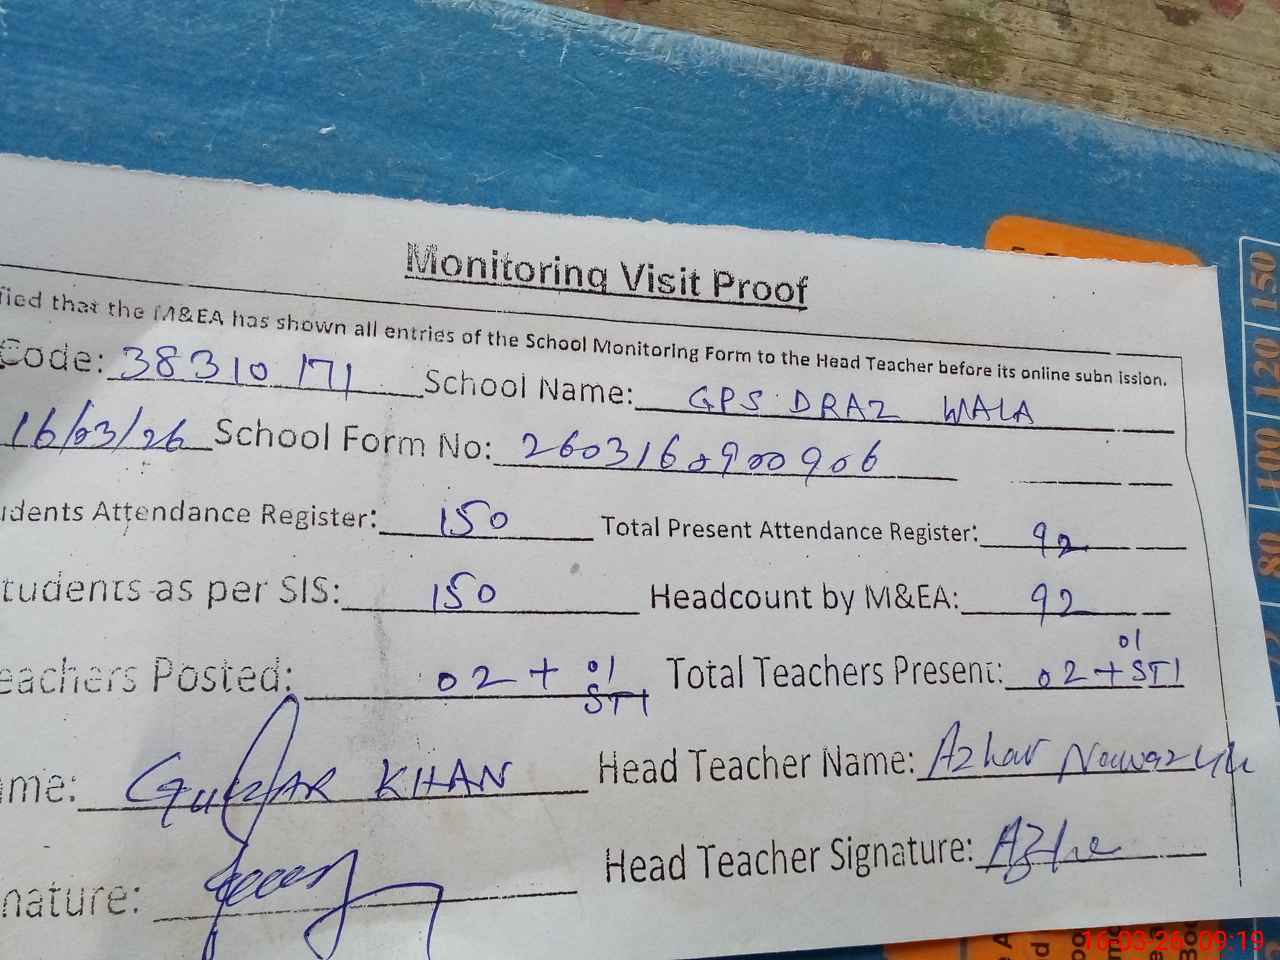 Monitoring Visit Proof
fied that the M&EA has shown all entries of the School Monitoring Form to the Head Teacher before its online subn ission.
Code: 38310171 School Name: GPS DRAZ WALA
16/03/26 School Form No: 2603160900906
idents Attendance Register: 150 Total Present Attendance Register: 92
tudents as per SIS: 150 Headcount by M&EA: 92
eachers Posted: 02 + 01 STI Total Teachers Present: 02 + 01 STI
me: GULZAR KHAN Head Teacher Name: Azhar Nawaz
nature: Head Teacher Signature: Azhe
150
120
100
80
16-03-26 09:19